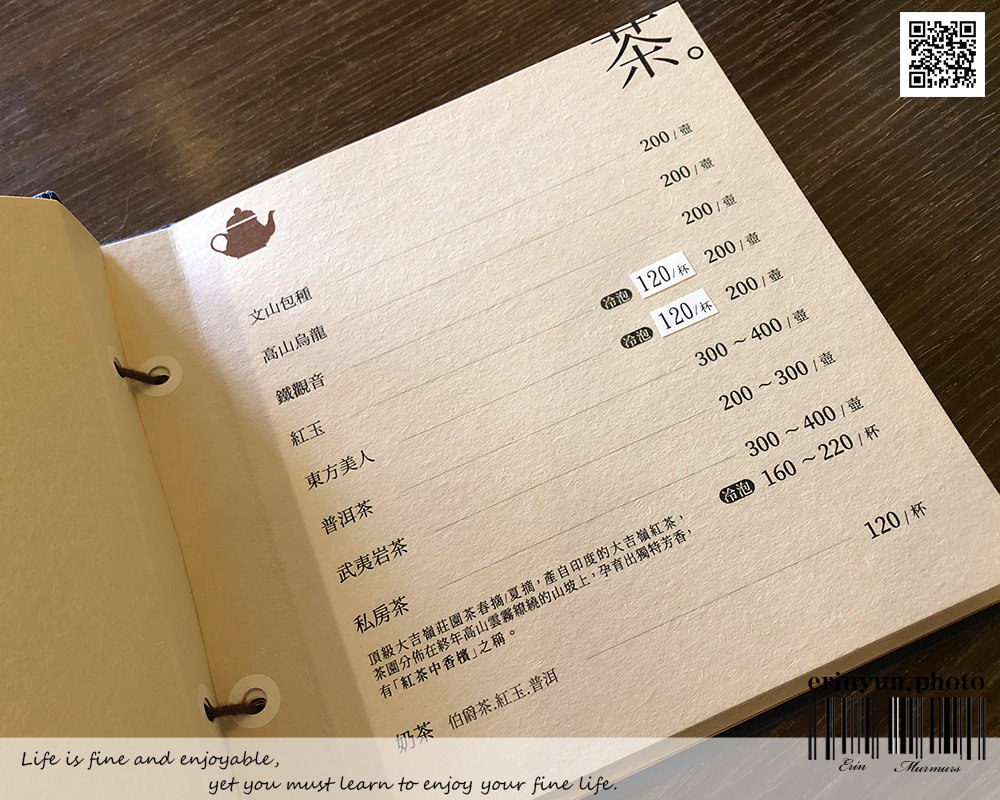 茶。
文山包種 200 / 壺
高山烏龍 200 / 壺
鐵觀音 200 / 壺
紅玉 冷泡 120/杯 200 / 壺
東方美人 冷泡 120/杯 200 / 壺
普洱茶 300～400 / 壺
武夷岩茶 200～300 / 壺
私房茶 300～400 / 壺
冷泡 160～220 / 杯
頂級大吉嶺莊園茶春摘/夏摘，產自印度的大吉嶺紅茶，
茶園分佈在終年高山雲霧繚繞的山坡上，孕育出獨特芳香，
有「紅茶中香檳」之稱。
奶茶 伯爵茶.紅玉.普洱 120 / 杯
erinyun.photo
Erin Murmurs
Life is fine and enjoyable,
yet you must learn to enjoy your fine life.